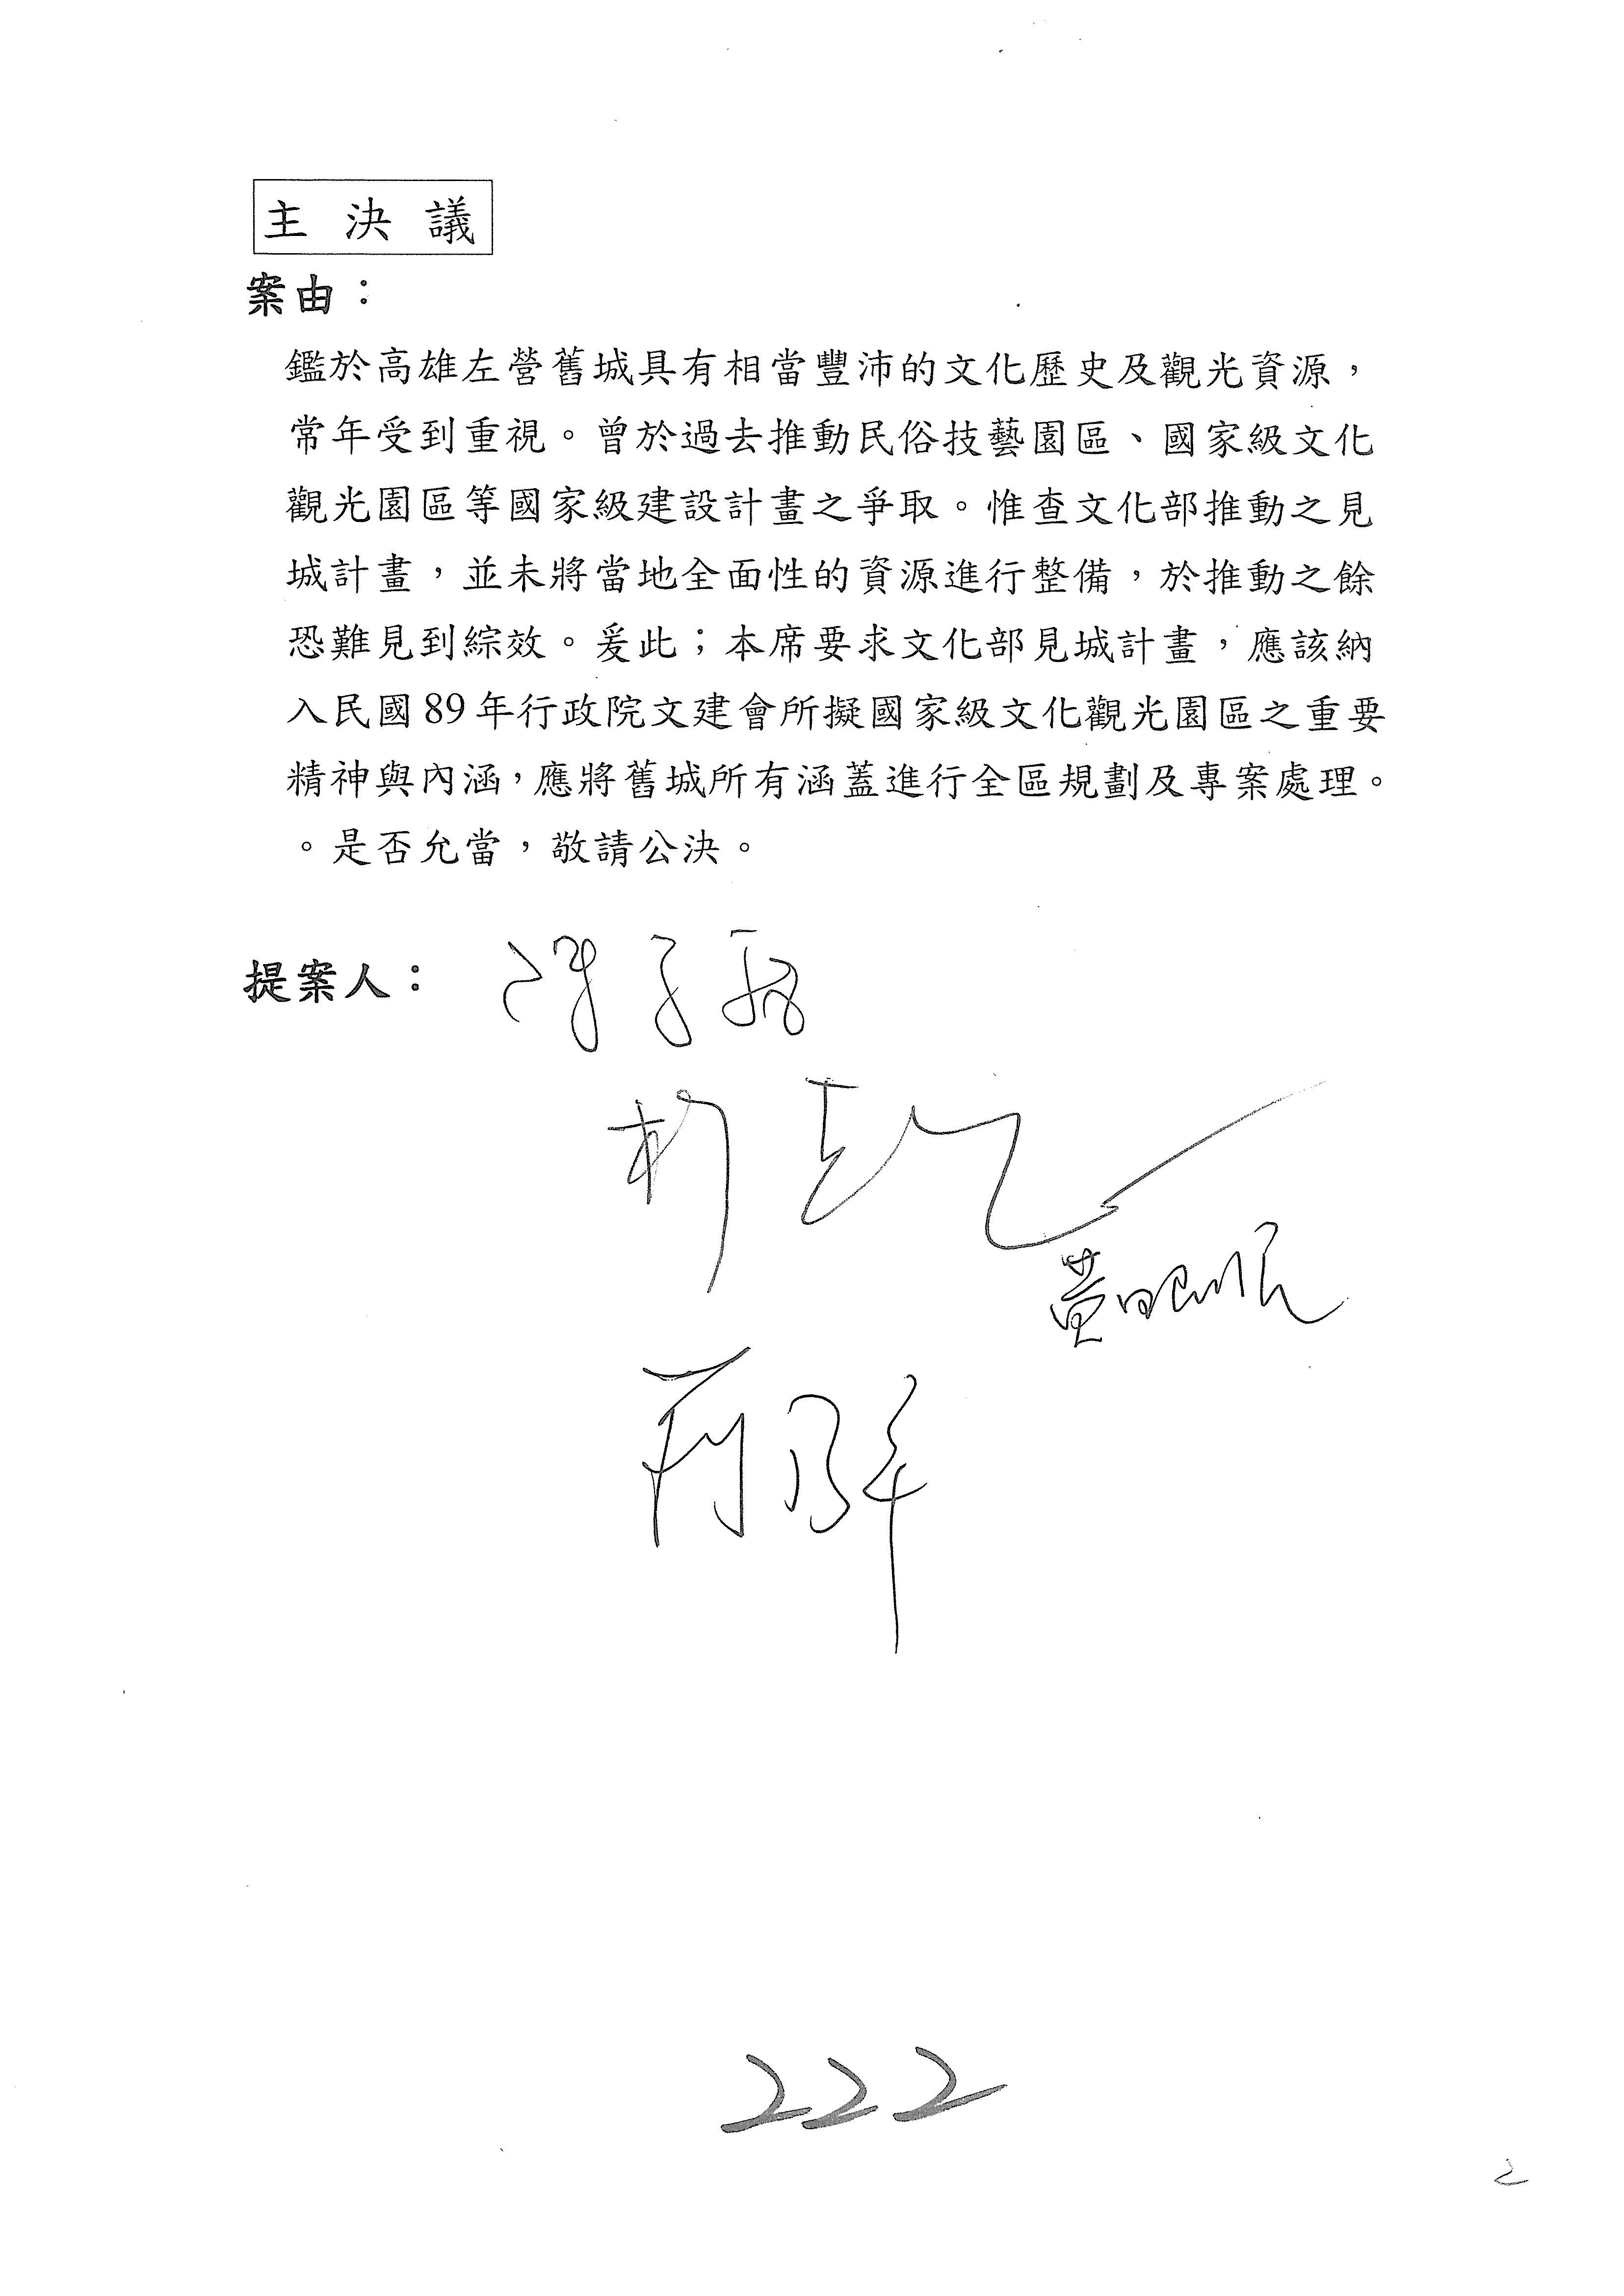 主決議
案由：
鑑於高雄左營舊城具有相當豐沛的文化歷史及觀光資源，
常年受到重視。曾於過去推動民俗技藝園區、國家級文化
觀光園區等國家級建設計畫之爭取。惟查文化部推動之見
城計畫，並未將當地全面性的資源進行整備，於推動之餘
恐難見到綜效。爰此；本席要求文化部見城計畫，應該納
入民國89年行政院文建會所擬國家級文化觀光園區之重要
精神與內涵，應將舊城所有涵蓋進行全區規劃及專案處理。
。是否允當，敬請公決。
提案人：
黃昭順
222
2